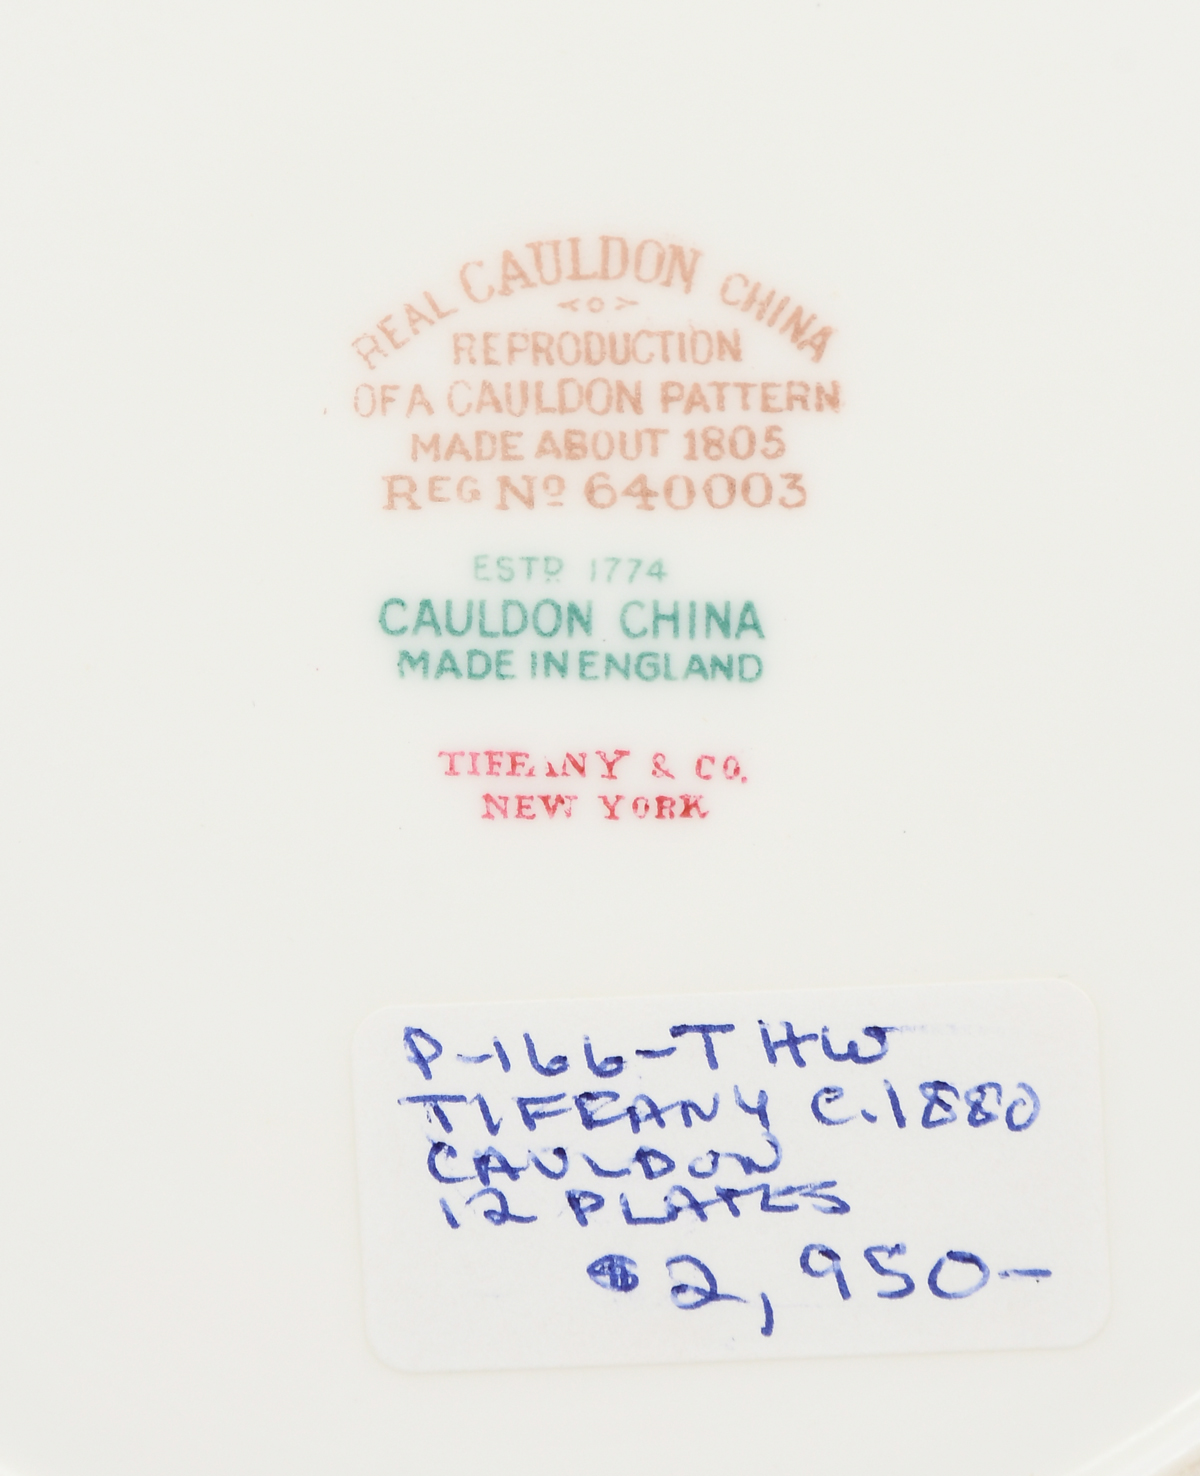 REAL CAULDON CHINA
REPRODUCTION
OF A CAULDON PATTERN
MADE ABOUT 1805
REG Nº 640003
ESTD 1774
CAULDON CHINA
MADE IN ENGLAND
TIFFANY & CO.
NEW YORK
P-166-T HW
TIFFANY C.1880
CAULDON
12 PLATES
$2,950-